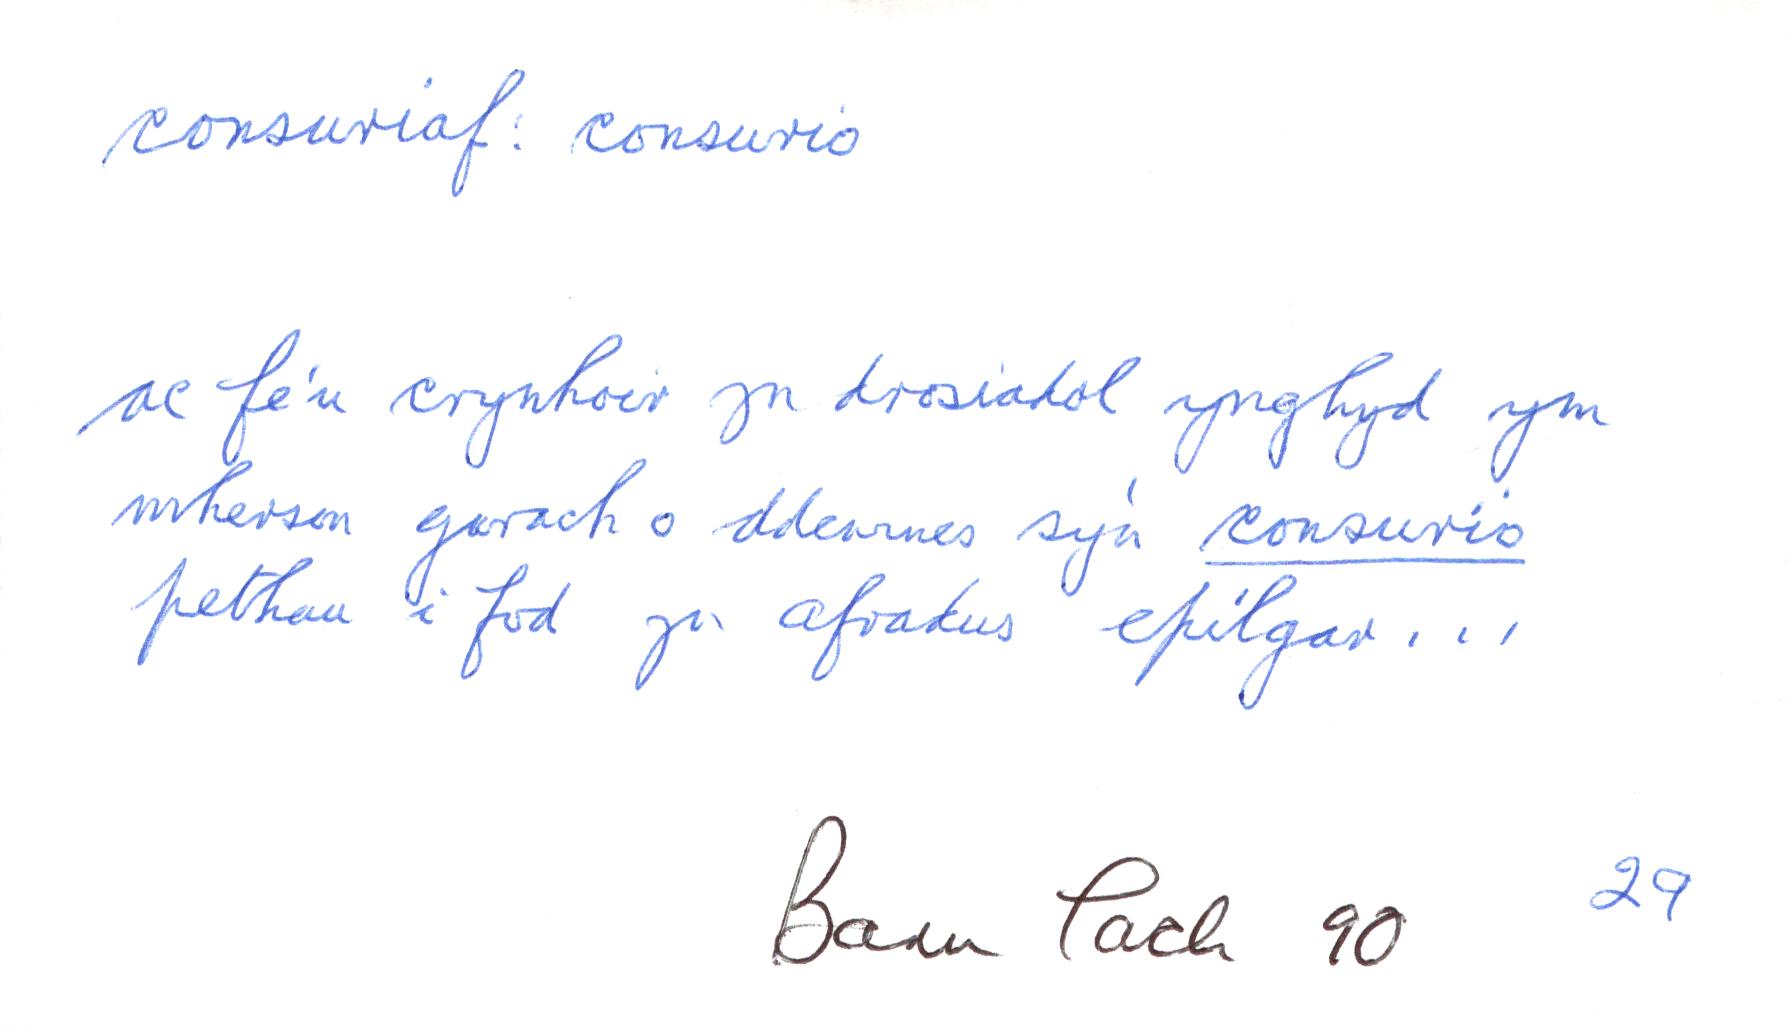 consuriaf: consurio
ac fe'u crynhoir yn drosiadol ynghyd ym
mherson gwrach o ddewines sy'n consurio
pethau i fod yn afradus epilgar...
Barn Tach 90 29